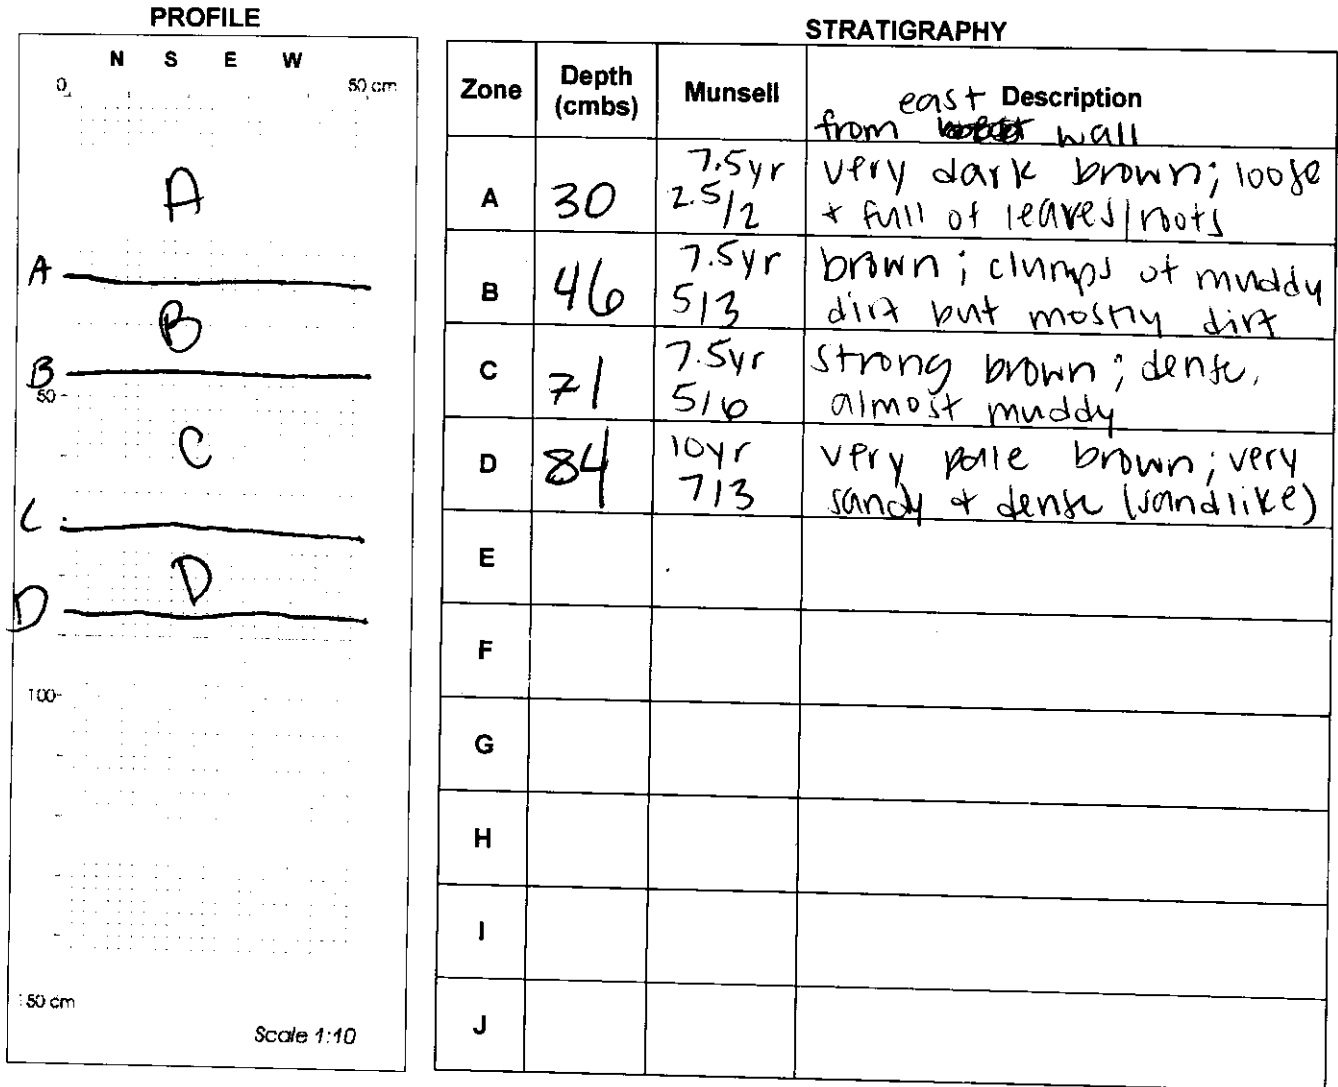 PROFILE
N S E W
0 50 cm
A
A
B
B
50
C
C
D
D
100
150 cm
Scale 1:10
STRATIGRAPHY
Zone Depth (cmbs) Munsell Description
from east wall
A 30 7.5yr 2.5/2 very dark brown; loose
+ full of leaves/roots
B 46 7.5yr 5/3 brown; clumps of muddy
dirt but mostly dirt
C 71 7.5yr 5/6 strong brown; dense,
almost muddy
D 84 10yr 7/3 very pale brown; very
sandy + dense (sandlike)
E
F
G
H
I
J